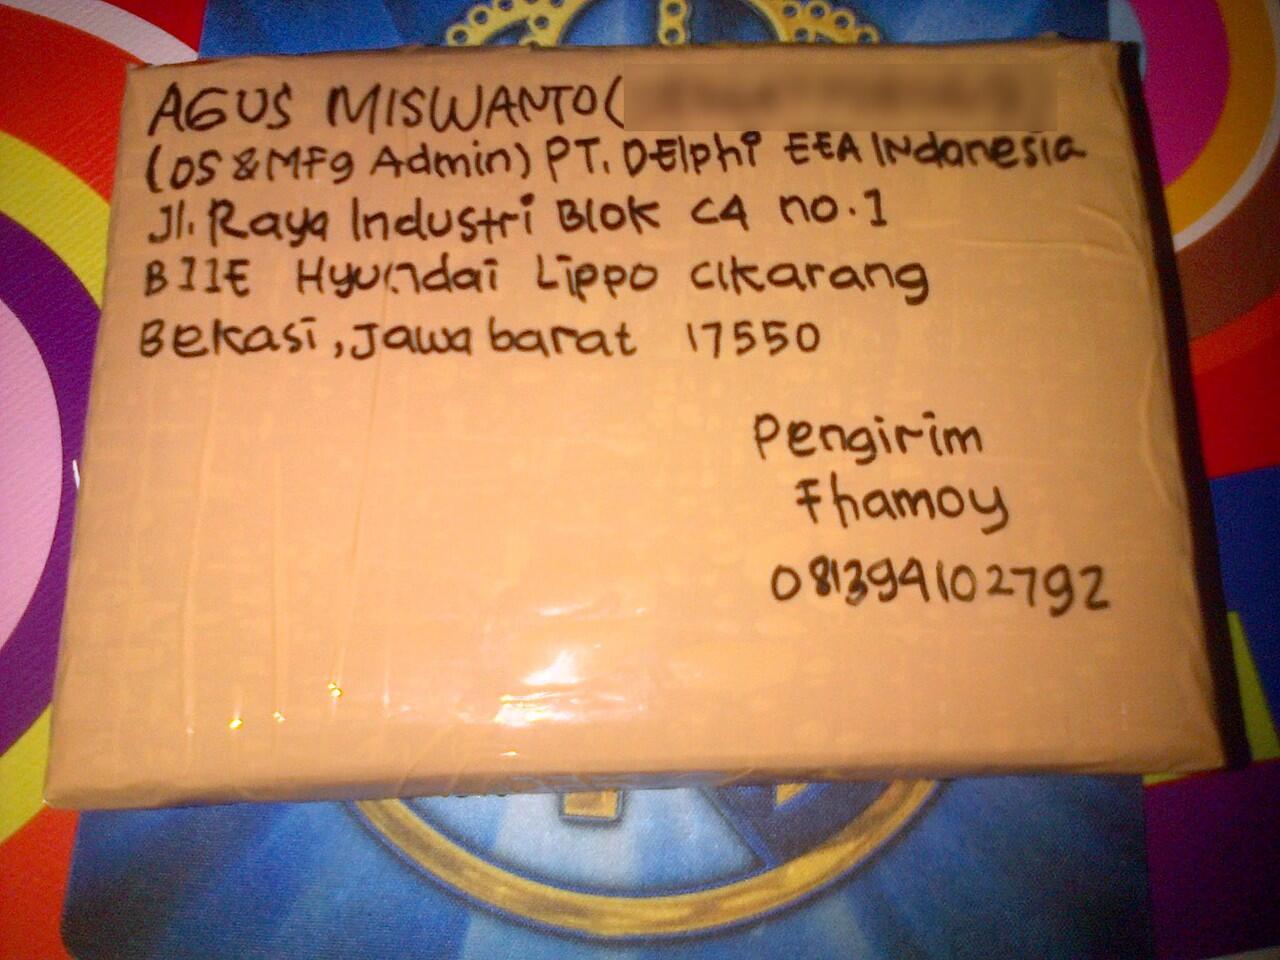 AGUS MISWANTO(
(DS & MFg Admin) PT. DElphi EEA INdonesia
Jl. Raya Industri Blok C4 no.1
BIIE Hyundai Lippo Cikarang
Bekasi, Jawa barat 17550
Pengirim
Fhamoy
081394102792